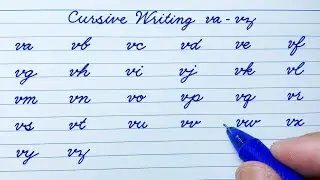 Cursive Writing va - vz
va vb vc vd ve vf
vg vh vi vj vk vl
vm vn vo vp vq vr
vs vt vu vv vw vx
vy vz